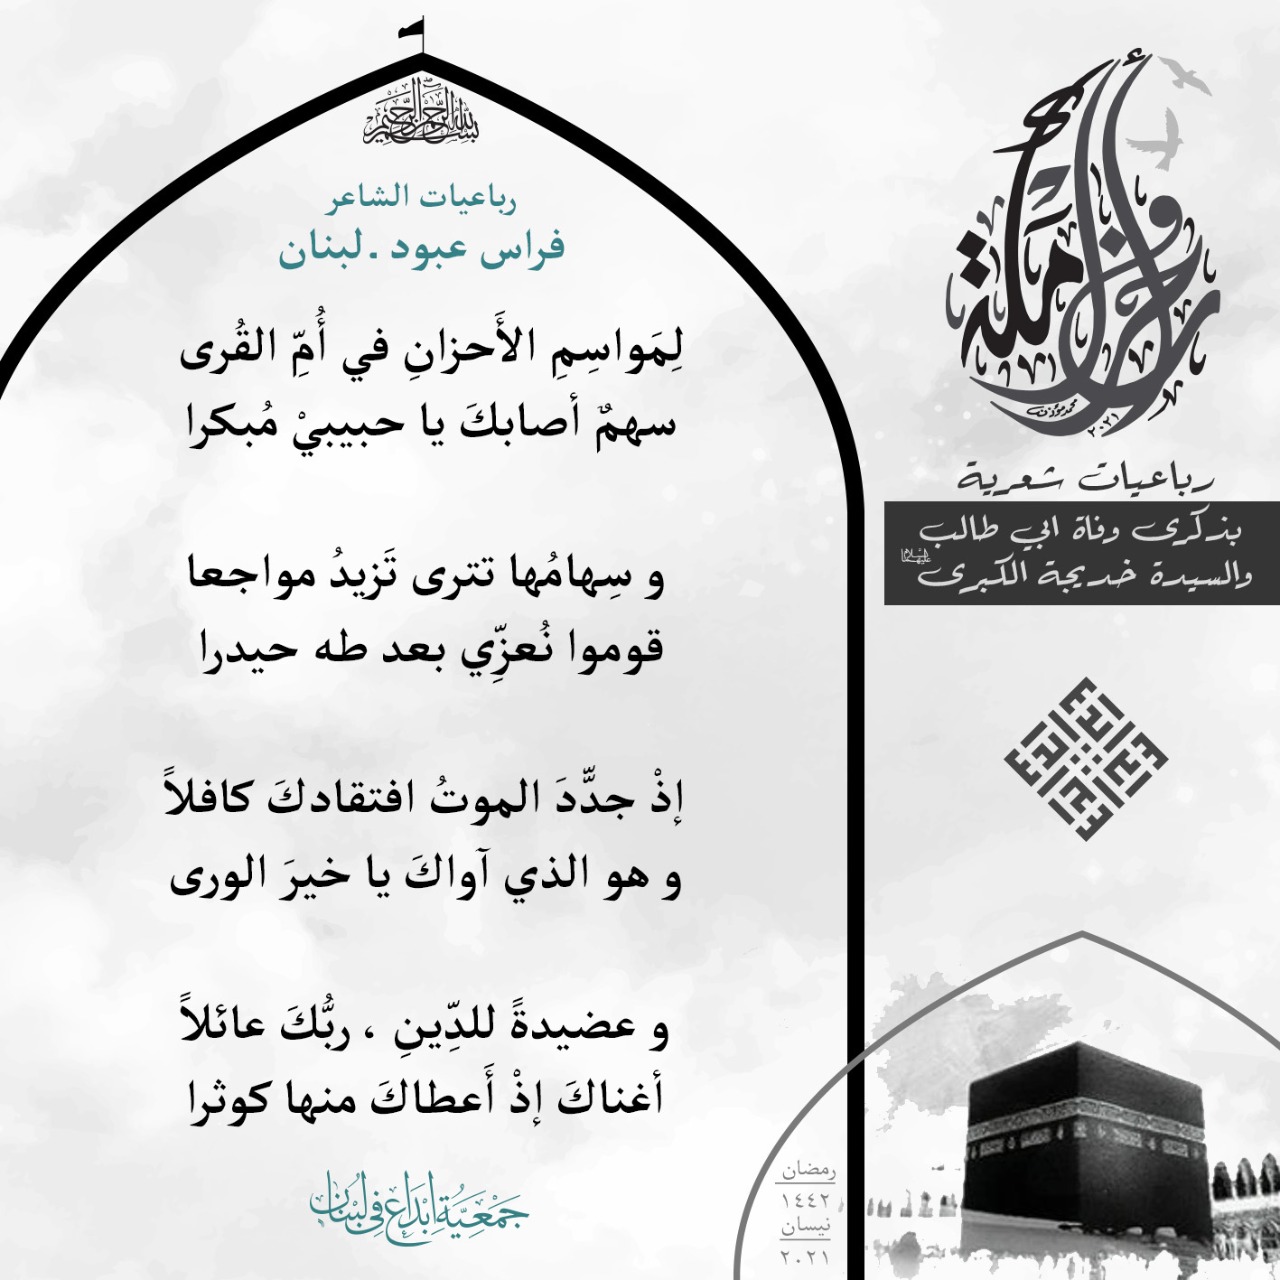 بسم الله الرحمن الرحيم
رباعيات الشاعر
فراس عبود ـ لبنان
لِمَواسِمِ الأَحزانِ في أُمِّ القُرى
سهمٌ أصابكَ يا حبيبيْ مُبكرا
و سِهامُها تترى تَزيدُ مواجعا
قوموا نُعزِّي بعد طه حيدرا
إذْ جدَّدَ الموتُ افتقادكَ كافلاً
و هو الذي آواكَ يا خيرَ الورى
و عضيدةً للدِّينِ ، ربُّكَ عائلاً
أغناكَ إذْ أَعطاكَ منها كوثرا
جَمْعِيَّةُ إبْدَاع في لبْنَان
محمد مؤذن
٢٠٢١
رباعيات شعرية
بذكرى وفاة ابي طالب
والسيدة خديجة الكبرى عليهما السلام
إبداع
رمضان
١٤٤٢
نيسان
٢٠٢١